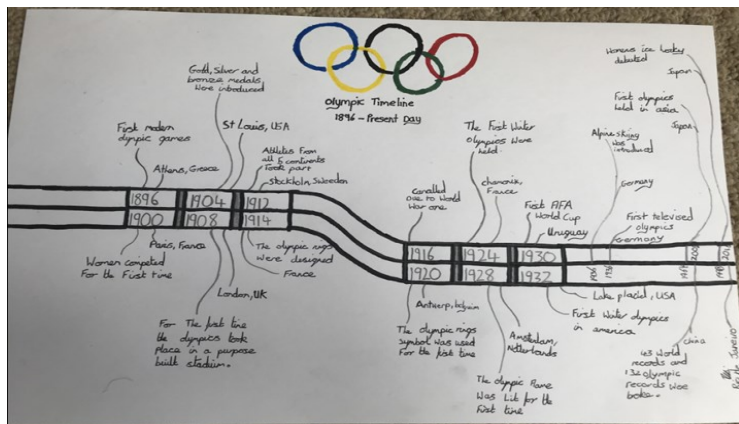 Olympic Timeline
1896 - Present Day
Gold, Silver and
bronze medals
Were introduced
First modern
olympic games
Athens, Greece
St Louis, USA
Athletes From
all 5 continents
Took part
Stockholm, Sweeden
1896
1904
1912
1900
1908
1914
Women competed
For the First time
Paris, France
London, UK
For The first time
the olympics took
place in a purpose
built stadium.
The olympic rings
Were designed
France
Cancelled
due to World
War one
The First Winter
Olympics Were
held.
chamonix,
France
First FIFA
World Cup
Uruguay
1916
1924
1930
1920
1928
1932
Antwerp, belgium
The olympic rings
symbol Was used
For the first time
Amsterdam,
Netherlands
The olympic flame
Was Lit for the
First time
Lake placid, USA
First Winter olympics
in america
Alpine skiing
was
introduced
Germany
First televised
olympics
Germany
1936
Womens ice hockey
debuted
Japan
First olympics
held in asia
Japan
china
43 World
records and
132 olympic
records were
Rio de Janeiro